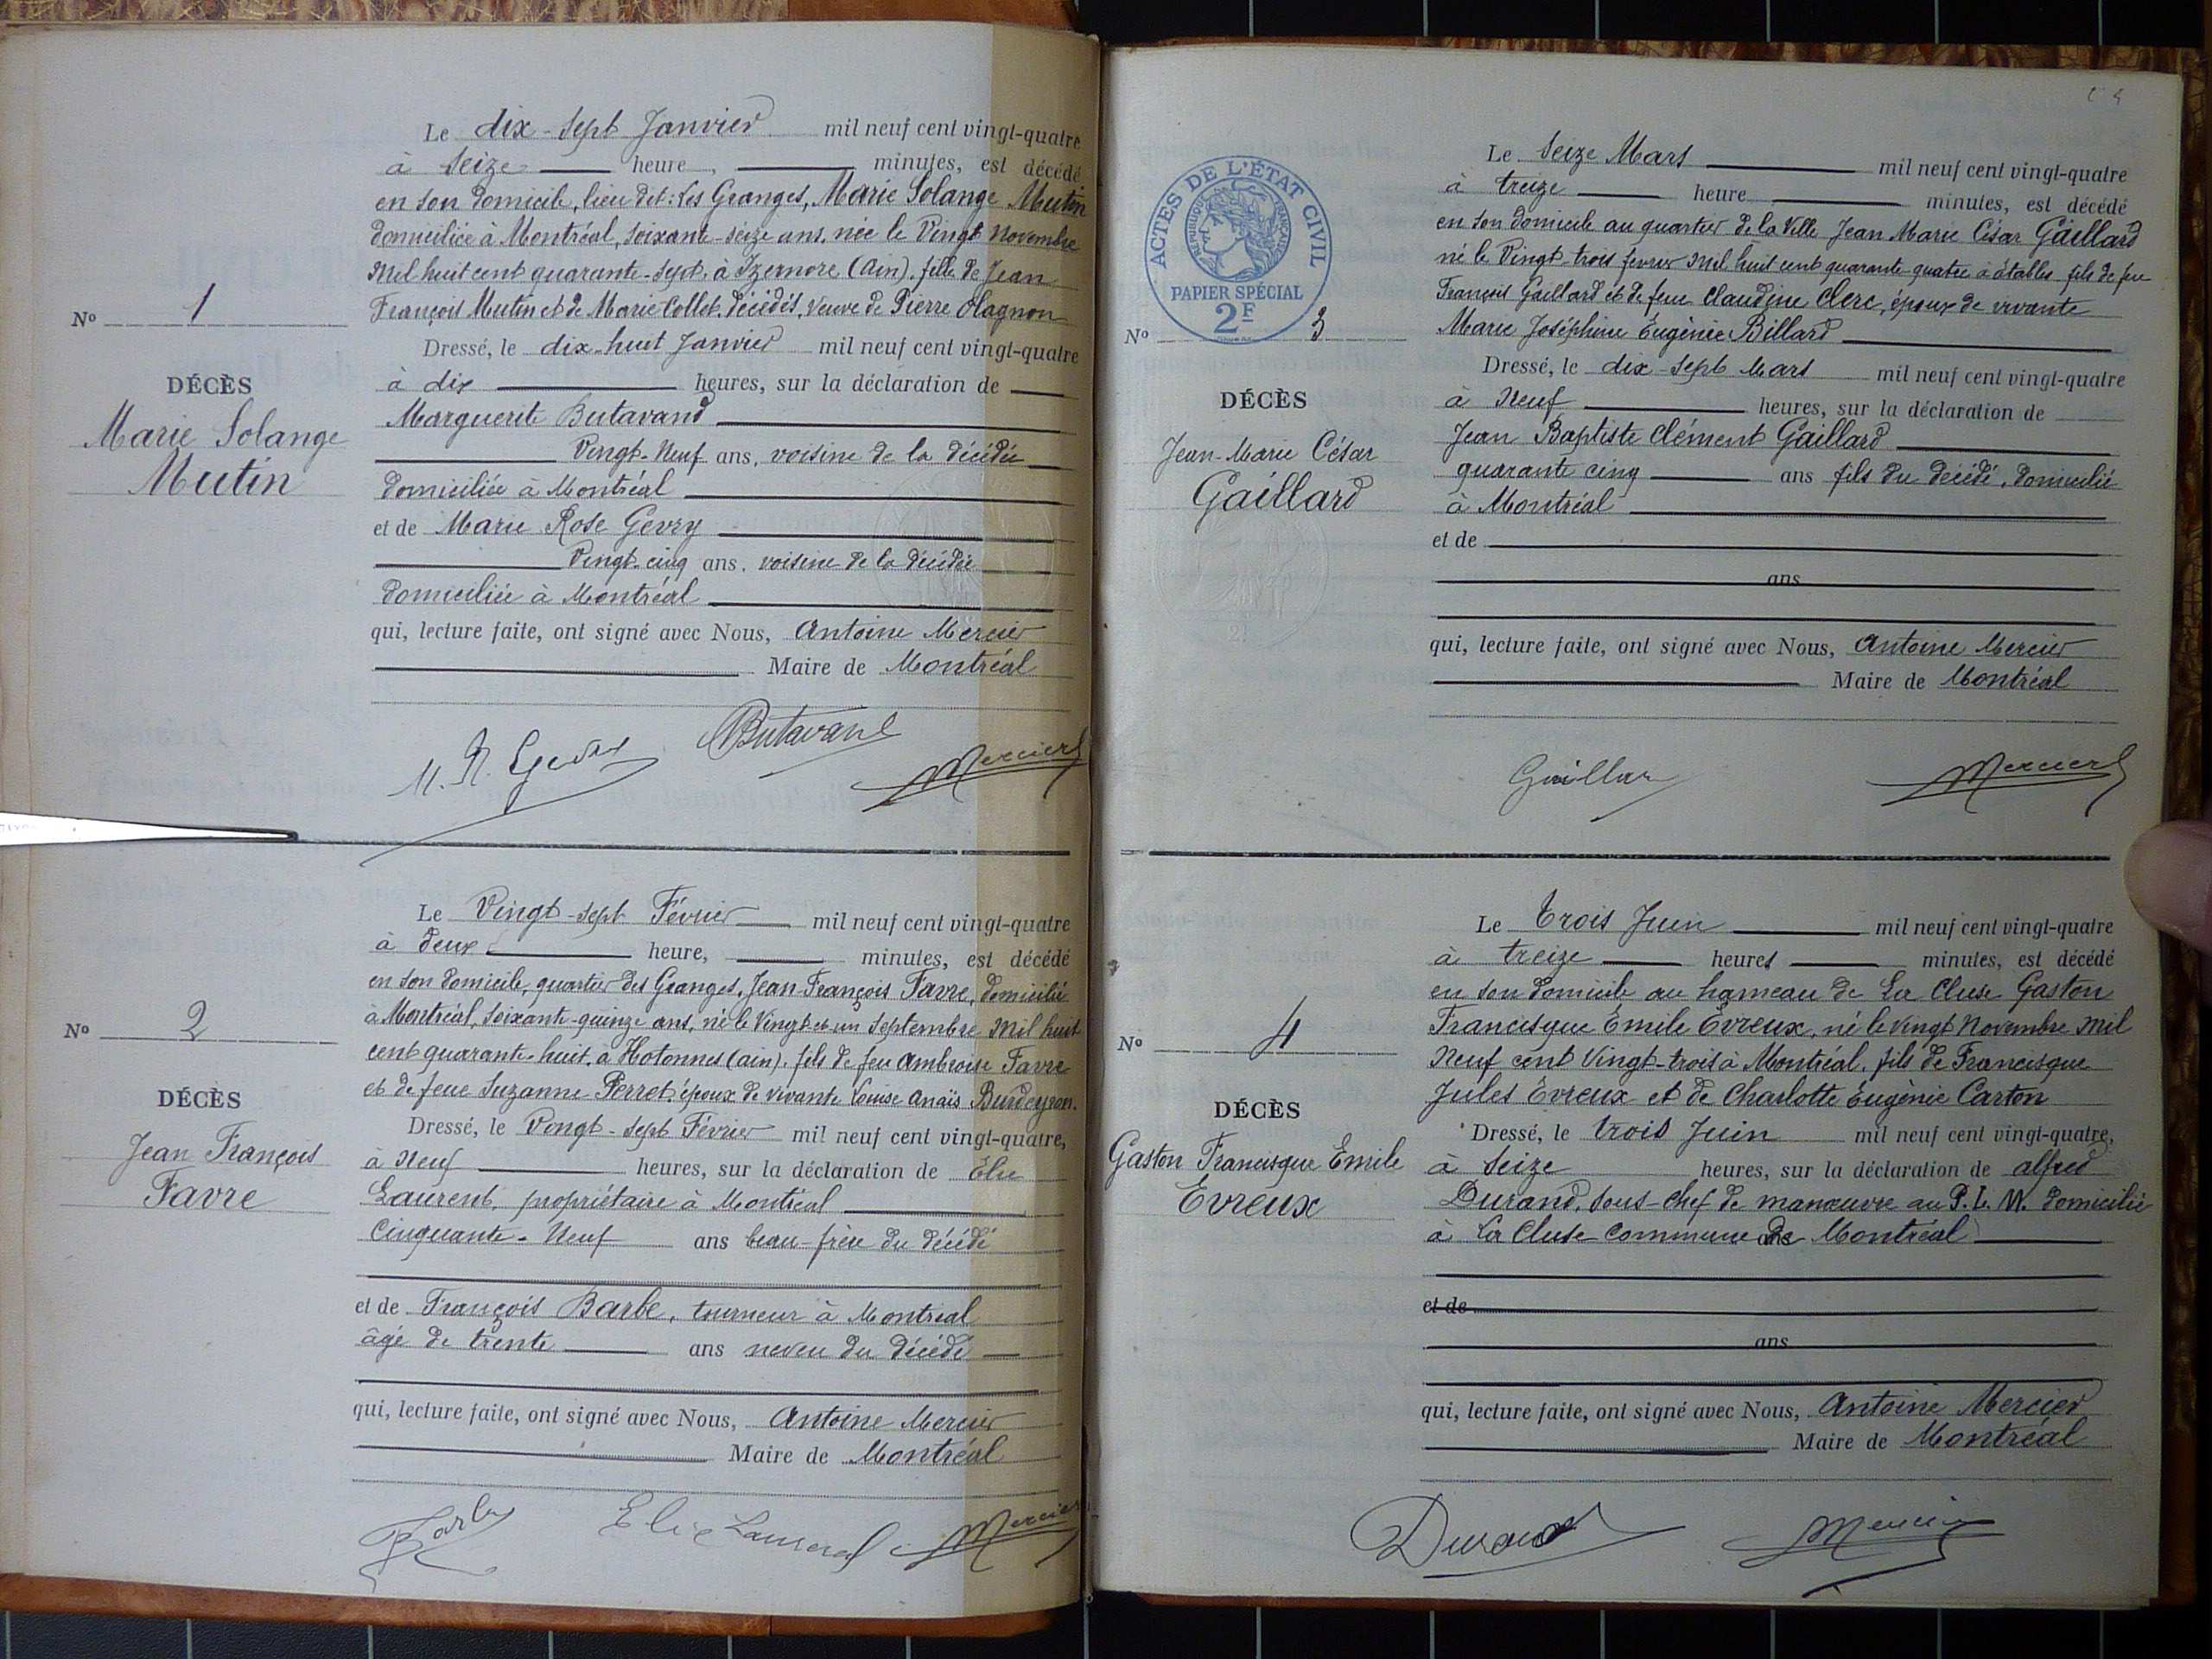 Le dix-sept Janvier mil neuf cent vingt-quatre
à seize heure, minutes, est décédé
en son domicile, lieu dit: Les Granges, Marie Solange Mutin
domiciliée à Montréal, soixante-seize ans, née le Vingt Novembre
Mil huit cent quarante-sept, à Izernore (Ain), fille de Jean
François Mutin et de Marie Collet, décédés, veuve de Pierre Olagnon
Nº 1
Dressé, le dix-huit Janvier mil neuf cent vingt-quatre
DÉCÈS
Marie Solange
Mutin
à dix heures, sur la déclaration de
Marguerite Butavand
Vingt-Neuf ans, voisine de la décédée
domiciliée à Montréal
et de Marie Rose Gevry
Vingt-cinq ans, voisine de la décédée
domiciliée à Montréal
qui, lecture faite, ont signé avec Nous, Antoine Mercier
Maire de Montréal
M. R. Gevry Butavand Mercier
Le Vingt-sept Février mil neuf cent vingt-quatre
à deux heure, minutes, est décédé
en son domicile, quartier des Granges, Jean-François Favre, domicilié
à Montréal, soixante-quinze ans, né le Vingt et un Septembre Mil huit
cent quarante-huit, à Hotonnes (ain), fils de feu Ambroise Favre
et de feue Suzanne Perret, époux de vivante Louise Anaïs Burdeyron.
Nº 2
DÉCÈS
Jean François
Favre
Dressé, le Vingt-sept Février mil neuf cent vingt-quatre,
à Neuf heures, sur la déclaration de Élie
Laurent, propriétaire à Montréal
Cinquante-Neuf ans beau-frère du décédé
et de François Barbe, tourneur à Montréal
âgé de trente ans neveu du décédé
qui, lecture faite, ont signé avec Nous, Antoine Mercier
Maire de Montréal
Barbe Elie Laurent Mercier
ACTES DE L'ÉTAT CIVIL
RÉPUBLIQUE FRANÇAISE
PAPIER SPÉCIAL
2F
Le Seize Mars mil neuf cent vingt-quatre
à treize heure minutes, est décédé
en son domicile au quartier de la Ville Jean Marie César Gaillard
né le Vingt-trois février Mil huit cent quarante-quatre à étables fils de feu
François Gaillard et de feue Claudine Clerc, époux de vivante
Marie Joséphine Eugénie Billard
Nº 3
DÉCÈS
Jean-Marie César
Gaillard
Dressé, le dix-sept Mars mil neuf cent vingt-quatre
à Neuf heures, sur la déclaration de
Jean Baptiste Clément Gaillard
quarante cinq ans fils du décédé, domicilié
à Montréal
et de
ans
qui, lecture faite, ont signé avec Nous, Antoine Mercier
Maire de Montréal
Gaillard Mercier
Le trois Juin mil neuf cent vingt-quatre
à treize heures minutes, est décédé
en son domicile au hameau de La Cluse Gaston
Francisque Emile Evreux, né le vingt Novembre Mil
Neuf cent Vingt-trois à Montréal, fils de Francisque
Jules Evreux et de Charlotte Eugénie Carton
Nº 4
DÉCÈS
Gaston Francisque Emile
Evreux
Dressé, le trois Juin mil neuf cent vingt-quatre,
à Seize heures, sur la déclaration de alfred
Durand, sous-chef de manœuvre au P. L. M. domicilié
à La Cluse commune de Montréal
et de
ans
qui, lecture faite, ont signé avec Nous, Antoine Mercier
Maire de Montréal
Durand Mercier